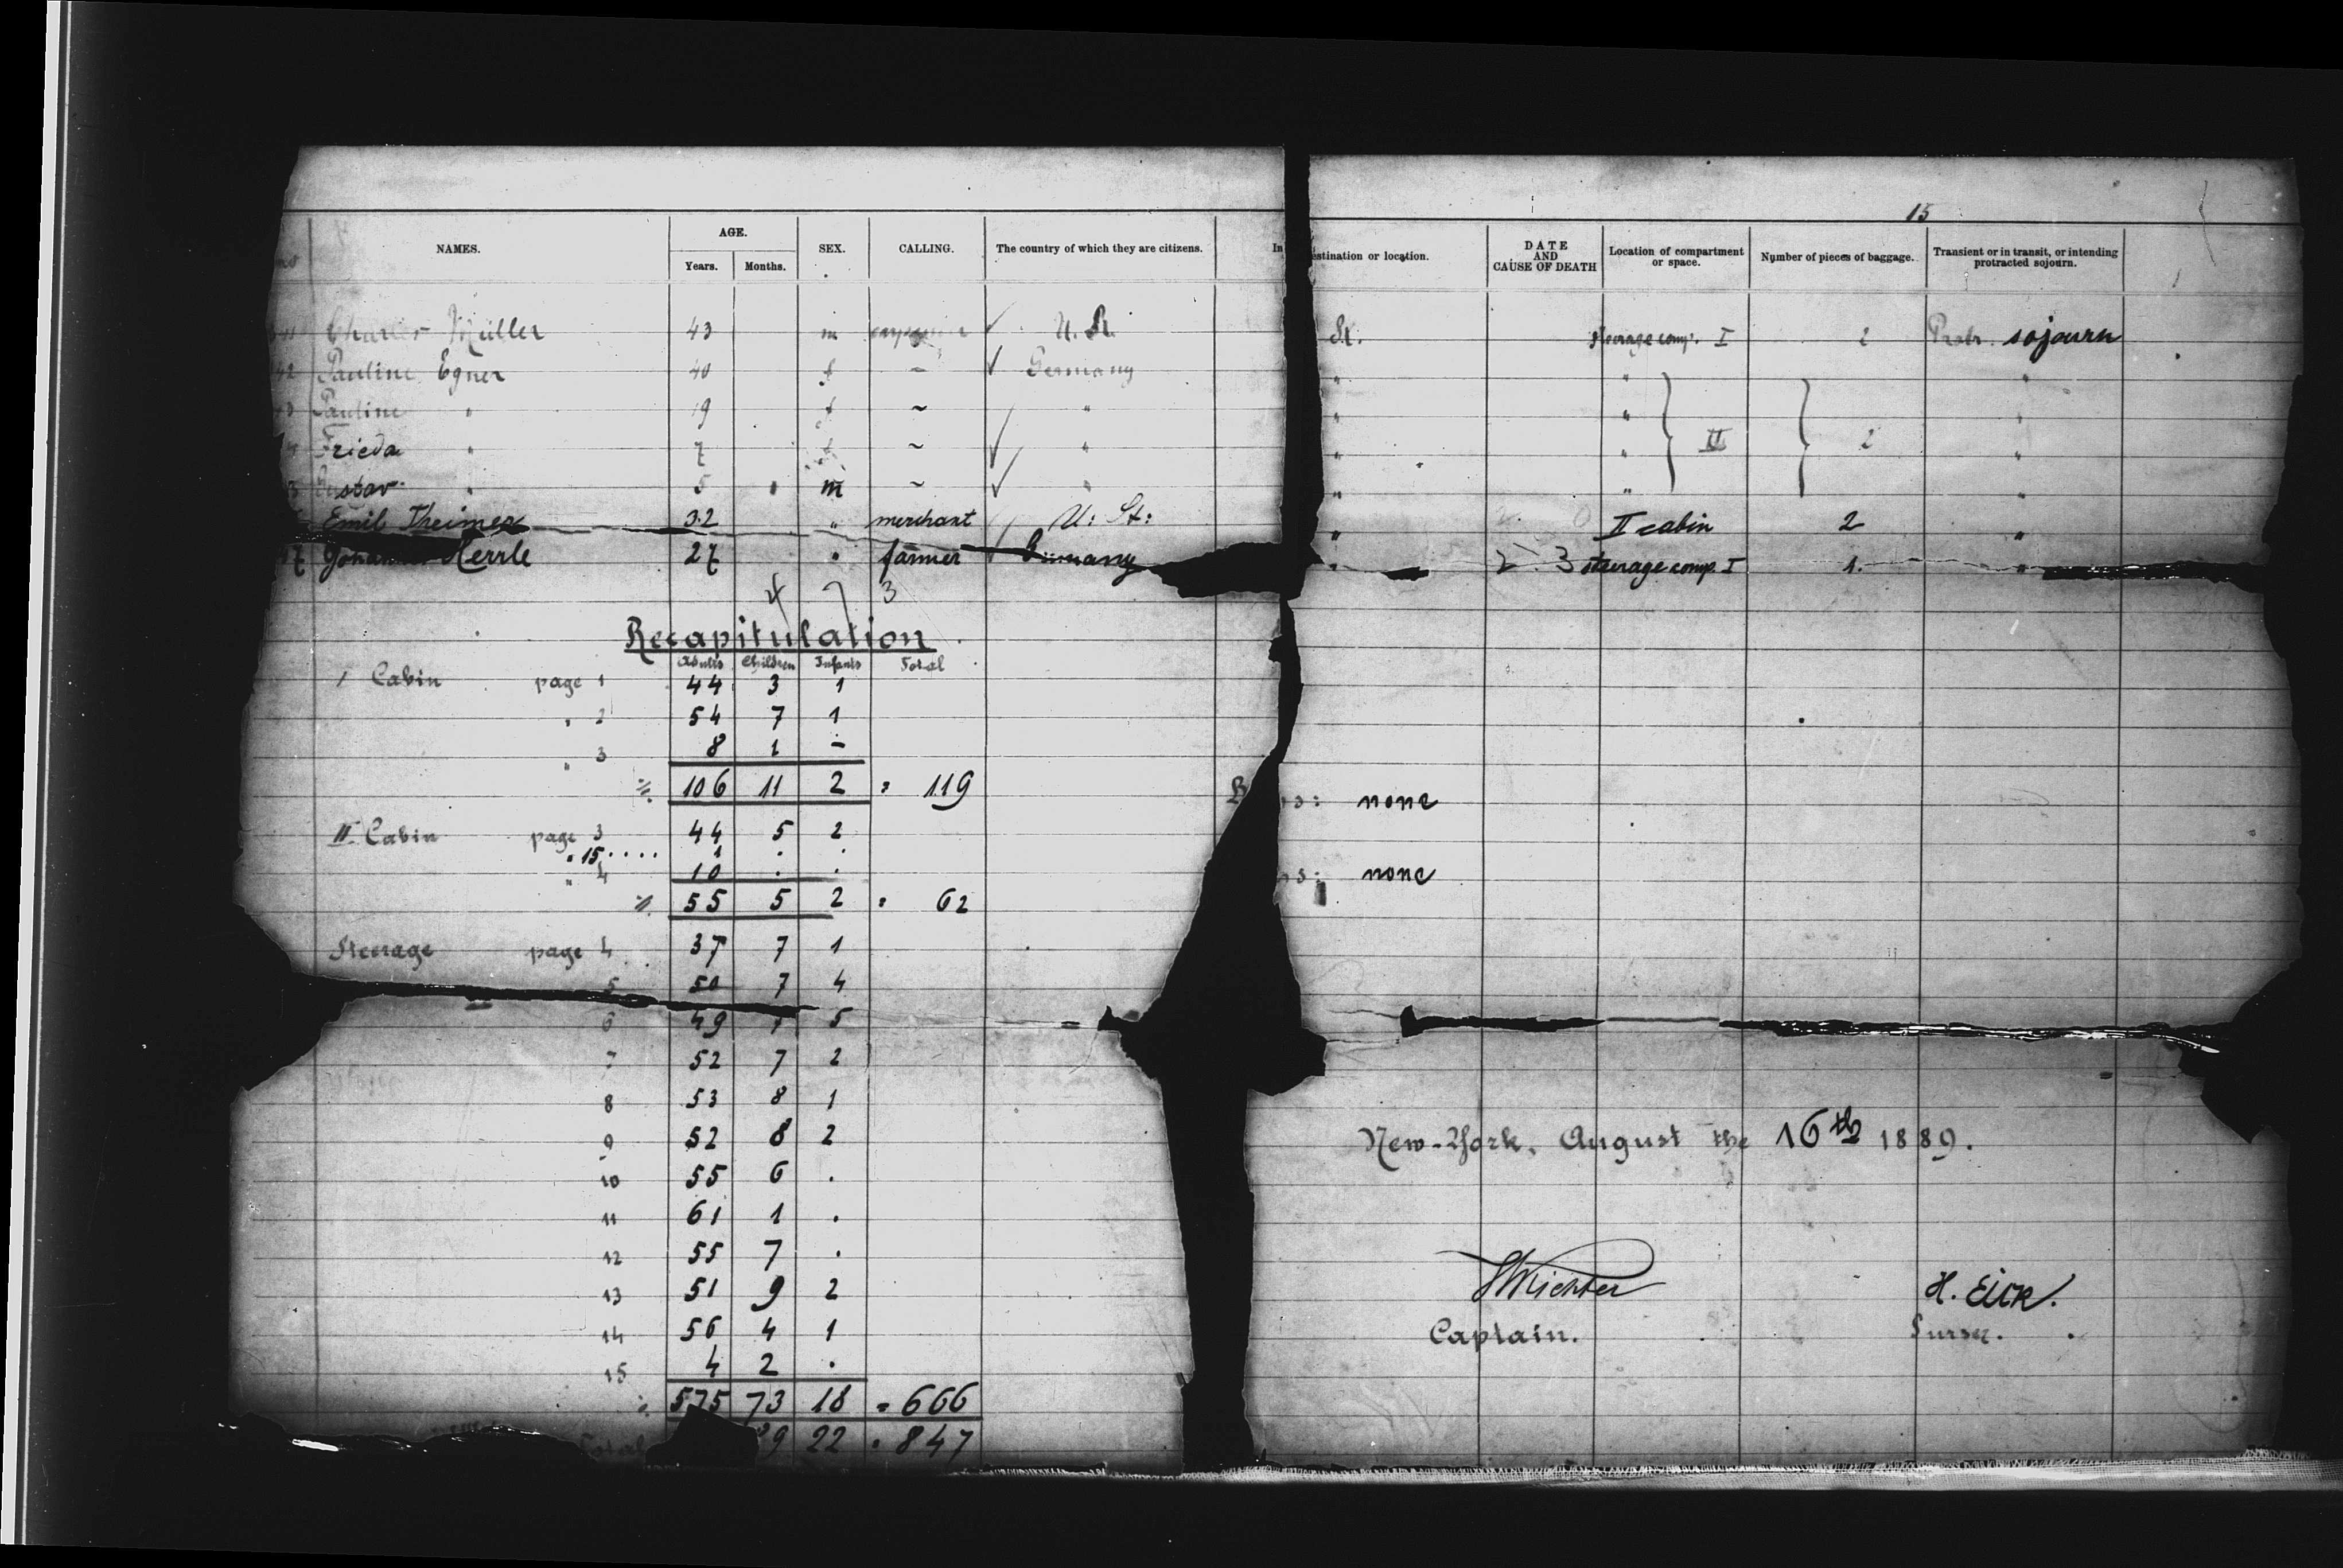 15
NAMES. AGE. Years. Months. SEX. CALLING. The country of which they are citizens. In estination or location. DATE AND CAUSE OF DEATH Location of compartment or space. Number of pieces of baggage. Transient or in transit, or intending protracted sojourn.
Charles Müller 43 m U. St. St. Steerage comp. I 2 Protr. sojourn
42 Pauline Egner 40 f ~ Germany " " "
Pauline " 19 f ~ " " " "
Frieda " 7 f ~ " " " II 2 "
Gustav " 5 m ~ " " " "
Emil Theimer 32 " merchant U: St: " II cabin 2 "
47 Johannes Herrle 27 " farmer Germany " 2 3 steerage comp. I 1. "
4 7 3
Recapitulation
Adults Children Infants Total
I Cabin page 1 44 3 1
" 2 54 7 1
" 3 8 1 –
106 11 2 = 119 none
II Cabin page 3 44 5 2
" 15 .... 1 . .
" 4 10 . . none
55 5 2 = 62
Steerage page 4 37 7 1
5 50 7 4
6 49 7 5
7 52 7 2
8 53 8 1
9 52 8 2
New-York, August the 16th 1889.
10 55 6 .
11 61 1 .
12 55 7 .
13 51 9 2
HRichter H. Eick.
14 56 4 1
Captain. Purser.
15 4 2 .
575 73 18 = 666
Total 89 22 = 847